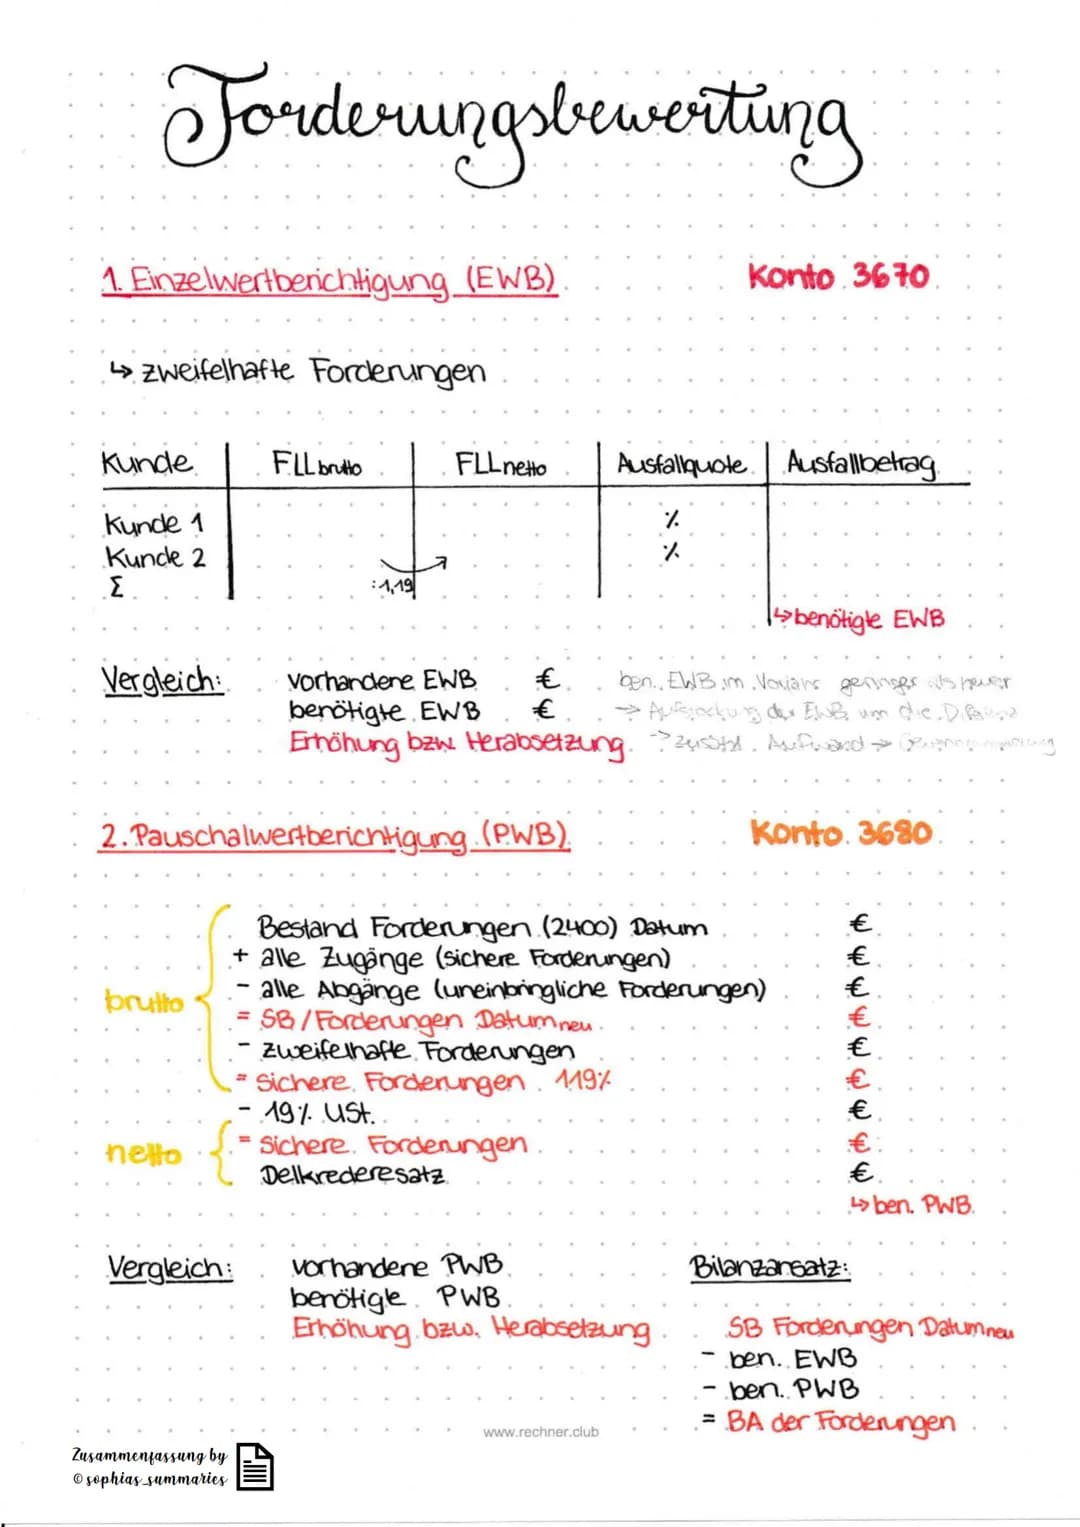 Forderungsbewertung
1. Einzelwertberichtigung (EWB) Konto 3670
↳ zweifelhafte Forderungen
Kunde FLL brutto FLL netto Ausfallquote Ausfallbetrag
Kunde 1 %
Kunde 2 %
Σ :1,19
↳ benötigte EWB
Vergleich: vorhandene EWB € ben. EWB im Vorjahr geringer als heuer
benötigte EWB € → Aufstockung der EWB um die Differenz
Erhöhung bzw. Herabsetzung → zusätzl. Aufwand →
2. Pauschalwertberichtigung (PWB) Konto 3680
Bestand Forderungen (2400) Datum €
+ alle Zugänge (sichere Forderungen) €
brutto - alle Abgänge (uneinbringliche Forderungen) €
= SB / Forderungen Datum neu €
- zweifelhafte Forderungen €
= Sichere Forderungen 119% €
- 19% USt. €
netto = Sichere Forderungen €
Delkrederesatz €
↳ ben. PWB
Vergleich: vorhandene PWB Bilanzansatz:
benötigte PWB
Erhöhung bzw. Herabsetzung SB Forderungen Datum neu
- ben. EWB
- ben. PWB
= BA der Forderungen
www.rechner.club
Zusammenfassung by
© sophias_summaries